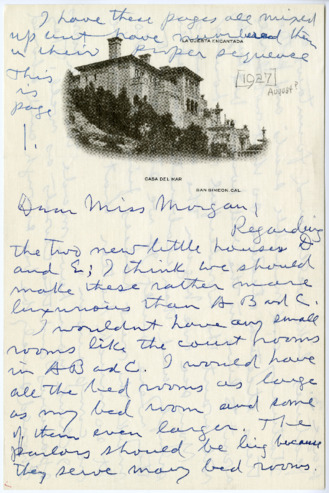 I have these pages all mixed
up but have numbered them
in their proper sequence
This
is
page
1.
LA CUESTA ENCANTADA
[1927]
August?
CASA DEL MAR
SAN SIMEON, CAL.
Dear Miss Morgan,
Regarding
the two new little houses D
and E; I think we should
make these rather more
luxurious than A B and C.
I wouldnt have any small
rooms like the court rooms
in A B and C. I would have
all the bed rooms as large
as my bed room and some
of them even larger. The
parlors should be big because
they serve many bed rooms.